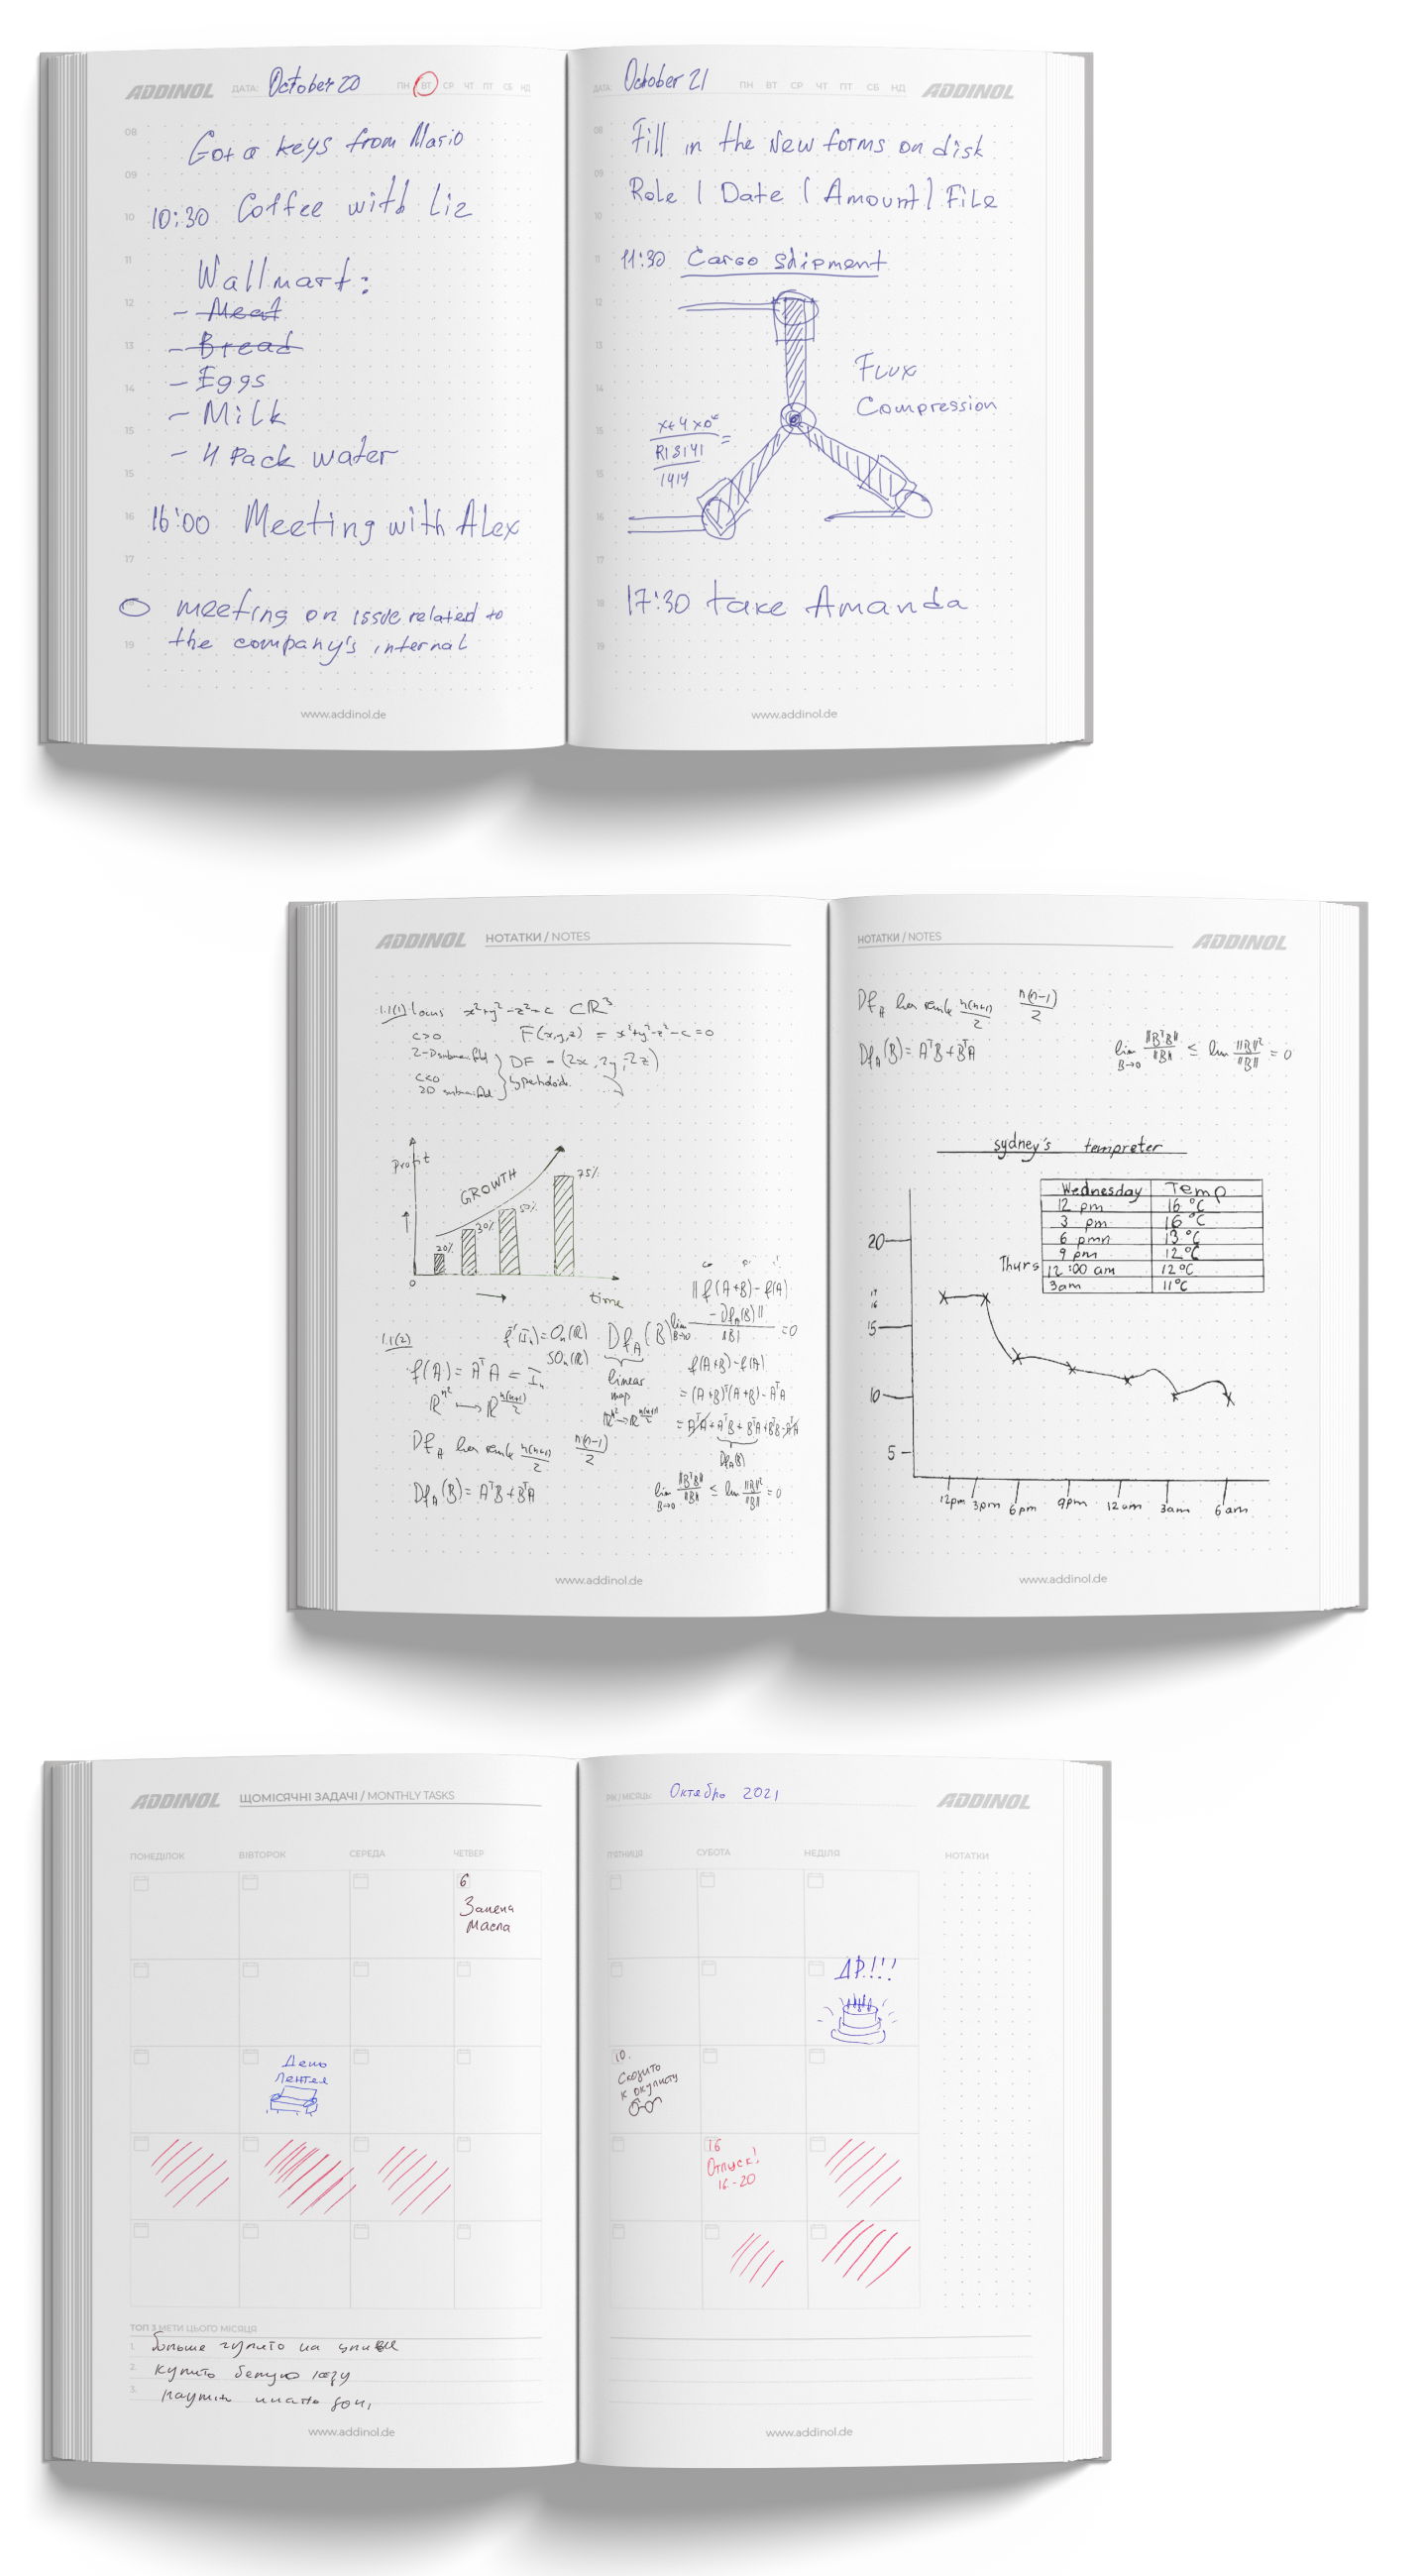 ADDINOL ДАТА: October 20 ПН ВТ СР ЧТ ПТ СБ НД
08
Got a keys from Mario
09
10
10:30 Coffee with Liz
11
Wallmart:
12
- Meat
13
- Bread
14
- Eggs
- Milk
15
- 4 Pack water
15
16
16:00 Meeting with Alex
17
meeting on issue related to
19
the company's internal
www.addinol.de
ДАТА: October 21 ПН ВТ СР ЧТ ПТ СБ НД ADDINOL
08
Fill in the New forms on disk
09
Role | Date | Amount | File
10
11
11:30 Cargo shipment
12
13
Flux
14
Compression
15
15
1414
16
17
18
17:30 take Amanda
19
www.addinol.de
ADDINOL НОТАТКИ / NOTES
1.1(1) locus x²+y²-z²=c ⊂ℝ³
c>0 F(x,y,z) = x²+y²-z²-c=0
2-D submanifold DF = (2x, 2y, -2z)
c<0
2D submanifold
Profit
GROWTH
20%
30%
50%
75%
0
time
‖f(A+B)-f(A)
-Df_A(B)‖
‖B‖ =0
1.1(2)
f⁻¹(I_n)=O_n(ℝ) Df_A(B) lim B→0
SO_n(ℝ)
f(A)=AᵀA=I_n
linear
map
f(A+B)-f(A)
=(A+B)ᵀ(A+B)-AᵀA
=AᵀA+AᵀB+BᵀA+BᵀB-AᵀA
Df_A(B)
Df_A has rank n(n+1)/2 n(n-1)/2
Df_A(B)=AᵀB+BᵀA
lim B→0 ‖BᵀB‖/‖B‖ ≤ lim ‖B‖²/‖B‖ =0
www.addinol.de
НОТАТКИ / NOTES ADDINOL
Df_A has rank n(n+1)/2 n(n-1)/2
Df_A(B)=AᵀB+BᵀA
lim B→0 ‖BᵀB‖/‖B‖ ≤ lim ‖B‖²/‖B‖ =0
sydney's tempreter
Wednesday Temp
12 pm 16 °C
3 pm 16 °C
6 pmn 13 °C
9 pm 12 °C
Thurs 12:00 am 12 °C
3am 11 °C
20
17
16
15
10
5
12pm 3pm 6pm 9pm 12am 3am 6am
www.addinol.de
ADDINOL ЩОМІСЯЧНІ ЗАДАЧІ / MONTHLY TASKS
ПОНЕДІЛОК ВІВТОРОК СЕРЕДА ЧЕТВЕР
6
Замена
масла
День
Лентяя
ТОП 3 МЕТИ ЦЬОГО МІСЯЦЯ
1. больше гулять на улице
2. купить белую
3.
www.addinol.de
РІК / МІСЯЦЬ: Октябрь 2021 ADDINOL
П'ЯТНИЦЯ СУБОТА НЕДІЛЯ НОТАТКИ
ДР!!!
10.
Сходить
к окулисту
16
Отпуск!
16-20
www.addinol.de